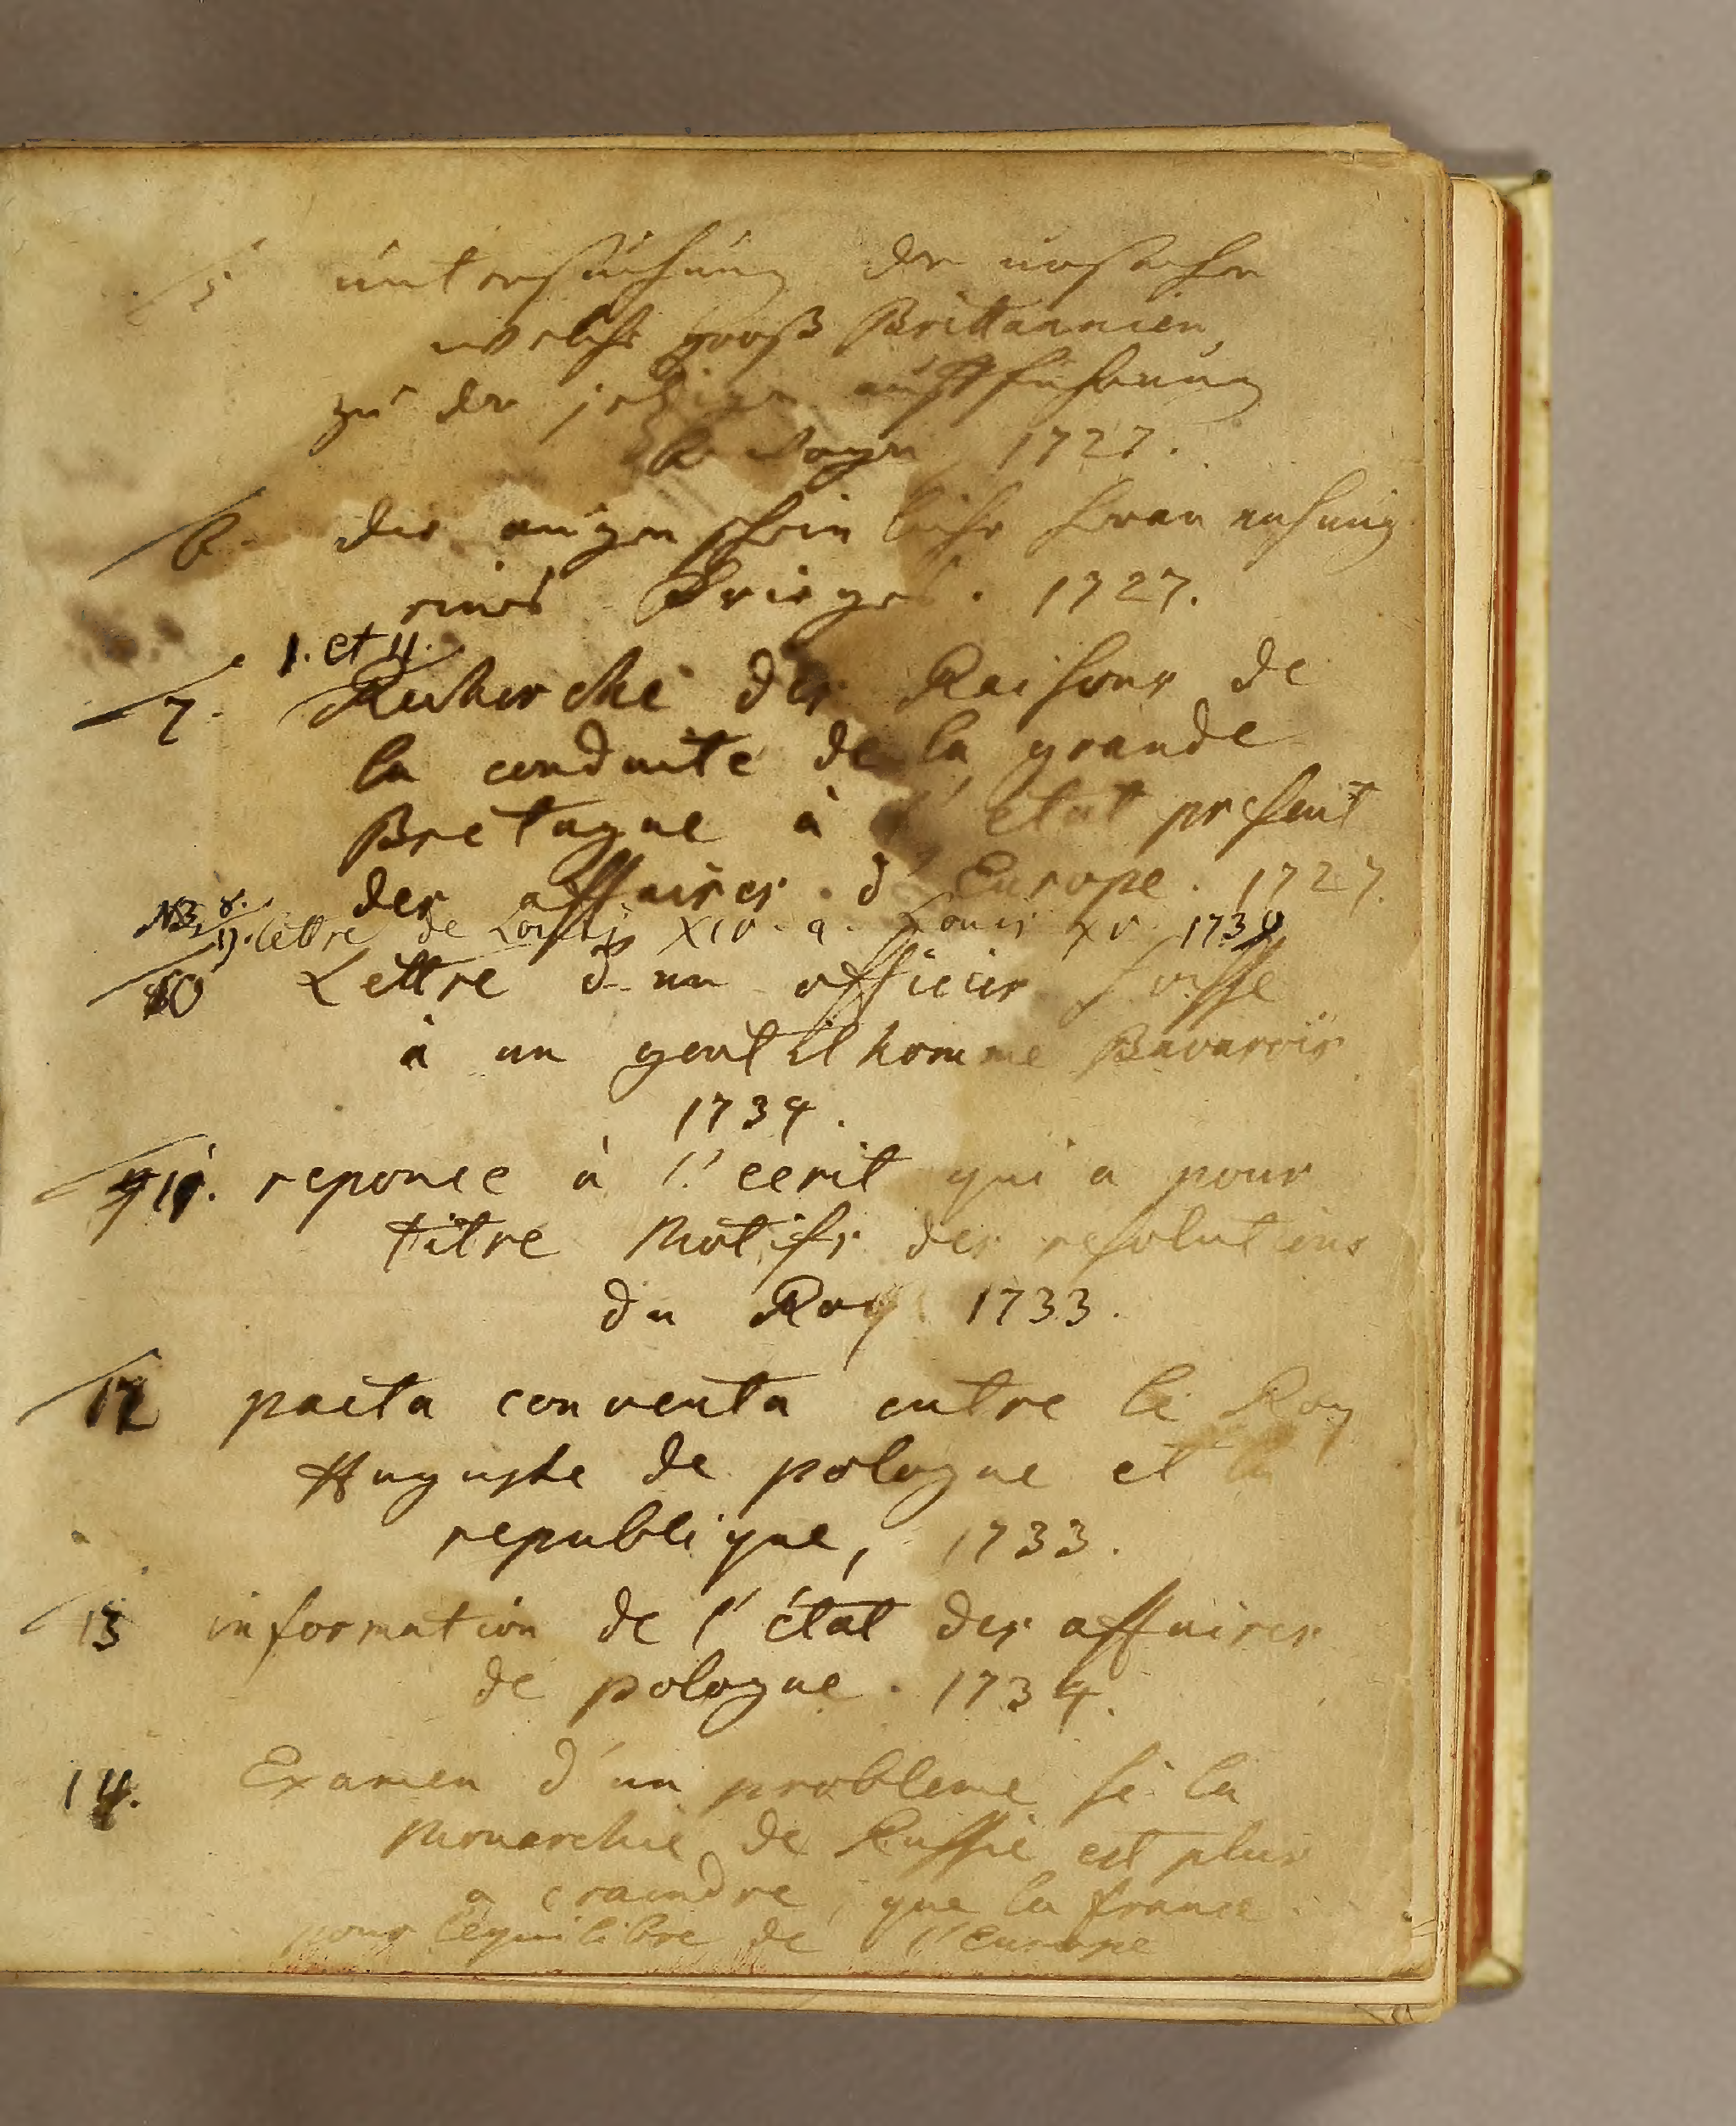 5 untersuchung der ursachen
welche groß Brittannien
zu der jetzigen aufführung
bewogen 1727.
6. die augenscheinliche herannahung
eines Krieges. 1727.
1. et 11.
7. Recherche des Raisons de
la conduite de la grande
Bretagne à l'etat present
des affaires d'Europe. 1727.
NB. 8. 9. lettre de Louis XIV. a. Louis XV. 1734
10 Lettre d'un officier suisse
à un gentilhomme Bavarois
1734.
11. reponce à l'ecrit qui a pour
titre Motifs des resolutions
du Roy 1733.
12 pacta conventa entre le Roy
Auguste de pologne et la
republique, 1733.
13 information de l'état des affaires
de pologne. 1734.
14. Examen d'un probleme si la
Monarchie de Russie est plus
a craindre, que la france
pour l'equilibre de l'Europe